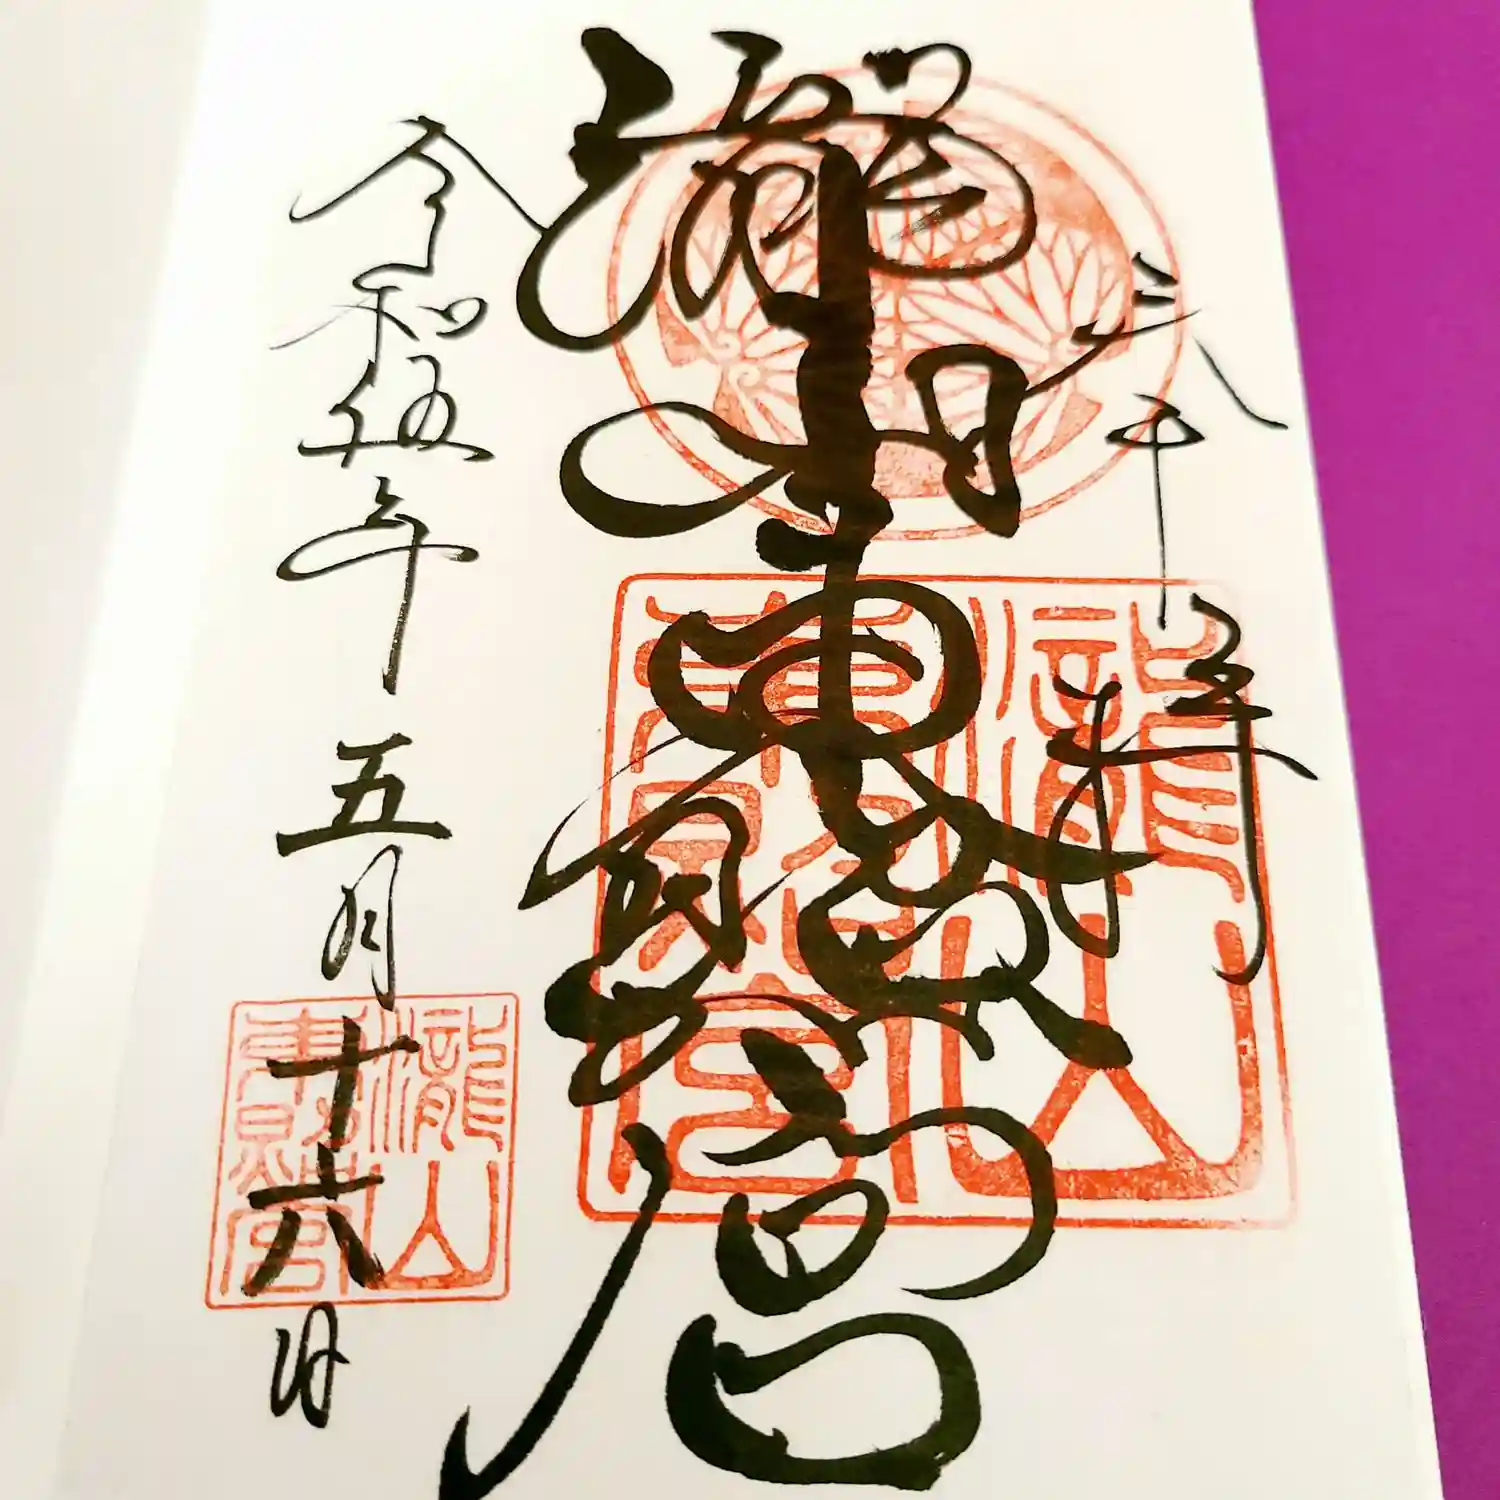 奉拝
瀧山東照宮
瀧山
東照宮
令和伍年 五月十六日
瀧山
東照宮